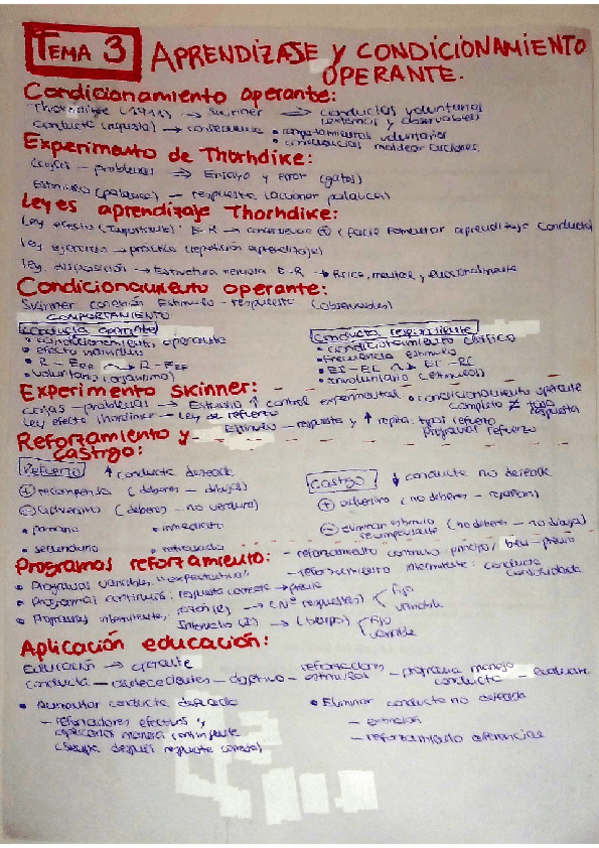 TEMA 3 APRENDIZAJE Y CONDICIONAMIENTO
OPERANTE.
Condicionamiento operante:
Thorndike (1911) → Skinner ⇒ conductas voluntarias
(externas y observables)
conducta (aquella) → consecuencia • comportamientos voluntarios
• consecuencias moldear
Experimento de Thorhdike:
cajas - problemas → Ensayo y error (gatos)
Estímulo (palanca) - respuesta (accionar palanca)
Leyes aprendizaje Thorhdike:
Ley efecto E-R → consecuencia ⊕ aprendizaje conducta)
ley ejercicio → práctica (repetición aprendizaje)
ley disposición → Estructura E-R →
Condicionamiento operante:
Skinner conexión Estímulo - respuesta (observables)
COMPORTAMIENTO
conducta operante
• condicionamiento operante
• efecto
• voluntario (organismo)
conducta respondiente
• condicionamiento clásico
• frecuencia estímulo
• EI - EC EI - RC
• involuntario (estímulos)
Experimento Skinner:
cajas - problemas → Estudio ↑ control experimental • condicionamiento operante
complejo ≠ respuesta
Ley efecto Thorndike - Ley de refuerzo
Estímulo - respuesta y ↑ tipos refuerzo
programas refuerzo
Reforzamiento y
castigo:
Refuerzo ↑ conducta deseada
⊕ recompensa (deberes - dibujos)
⊖ adversivo (deberes - no verdura)
• primario • inmediato
• secundario • retrasado
Castigo ↓ conducta no deseada
⊕ adversivo (no deberes - regañan)
⊖ eliminar estímulo
recompensante (no deberes - no dibujos)
Programas reforzamiento:
- reforzamiento continuo
- reforzamiento intermitente: conducta
consolidada
• Programas variables, "expectativa"
• Programas continuos, respuesta correcta → premio
• Programas intermitente, → (Nº respuestas) fijo
variable
Intervalo (I) → (tiempo) fijo
variable
Aplicación educación:
Educación → operante
conducta - antecedentes - objetivo - reforzadores
estímulos - programa manejo
conducta - evaluarte
• Aumentar conducta deseada
- reforzadores efectivos y
aplicarlos manera contingente
después respuesta correcta)
• Eliminar conducta no deseada
- extinción
- reforzamiento diferencias